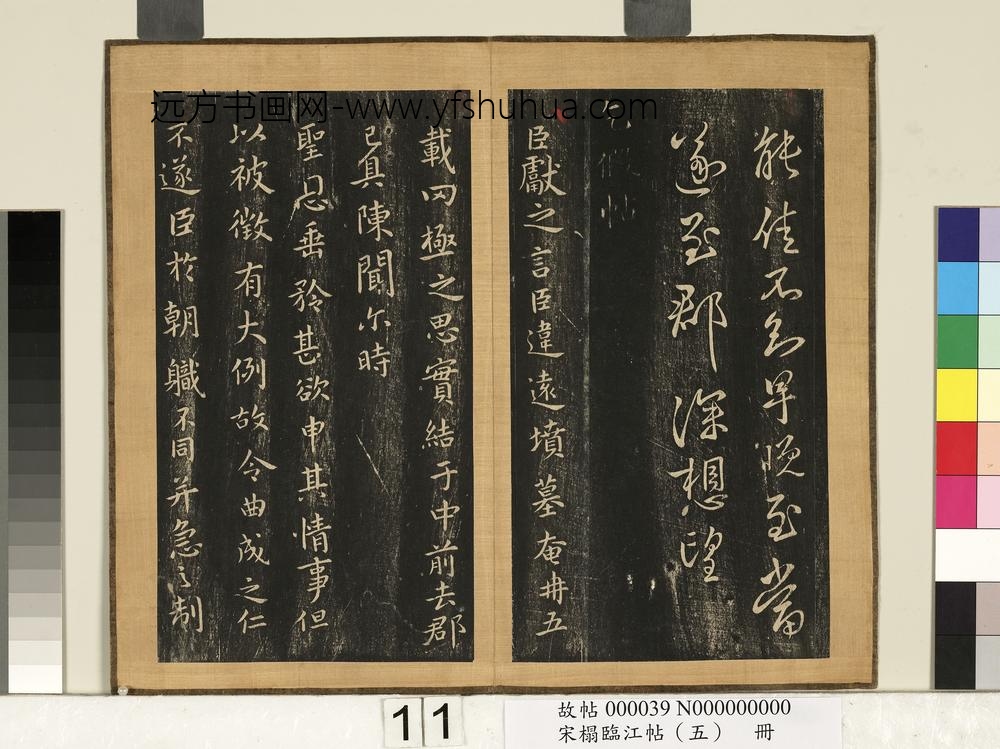 远方书画网-www.yfshuhua.com
能佳不知早晚至當
遂至郡深想望
乞假帖
臣獻之言臣違遠墳墓奄冉五
載罔極之思實結于中前去郡
已具陳聞尓時
聖恩垂矜甚欲申其情事但
以被徵有大例故令曲成之仁
不遂臣於朝職不同并急之制
11
故帖 000039 N000000000
宋榻臨江帖（五） 冊